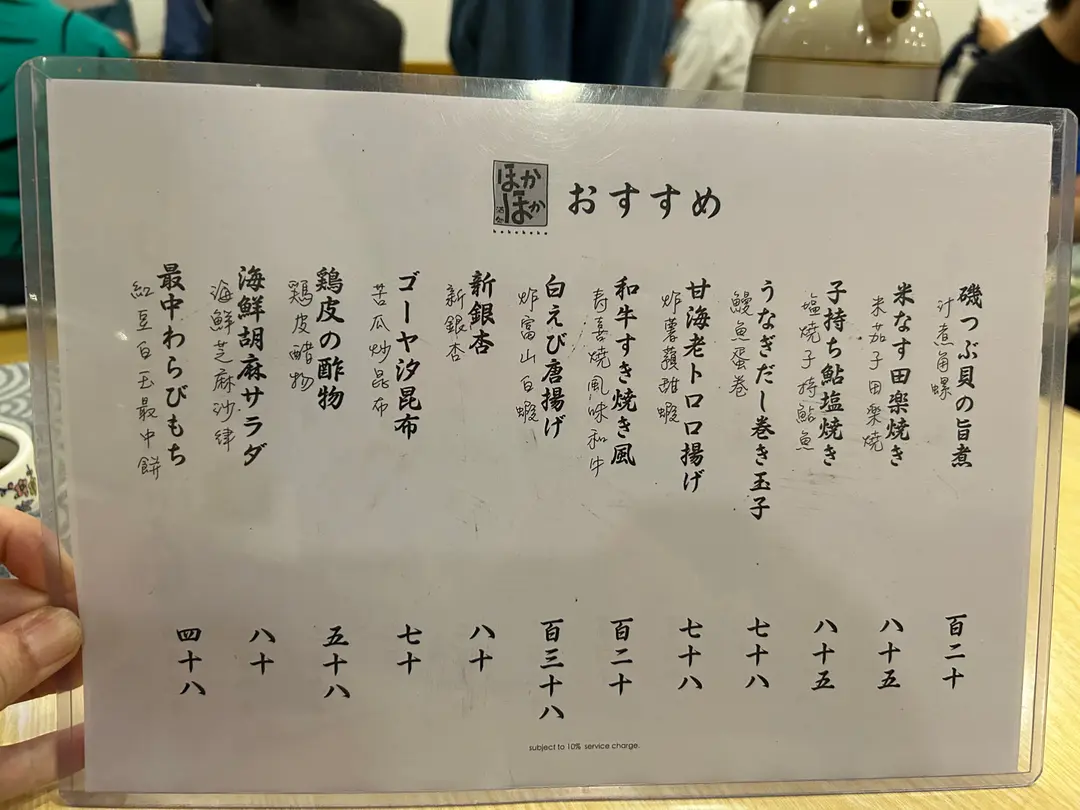 ほか
ほか
酒処
hokahoka
おすすめ
磯つぶ貝の旨煮
汁煮角螺
百二十
米なす田楽焼き
米茄子田樂燒
八十五
子持ち鮎塩焼き
塩燒子持鮎魚
八十五
うなぎだし巻き玉子
鰻魚蛋卷
七十八
甘海老トロロ揚げ
炸薯蓣甜蝦
七十八
和牛すき焼き風
寿喜燒風味和牛
百二十
白えび唐揚げ
炸富山白蝦
百三十八
新銀杏
新銀杏
八十
ゴーヤ汐昆布
苦瓜炒昆布
七十
鶏皮の酢物
鶏皮醋物
五十八
海鮮胡麻サラダ
海鮮芝麻沙律
八十
最中わらびもち
紅豆白玉最中餅
四十八
subject to 10% service charge.